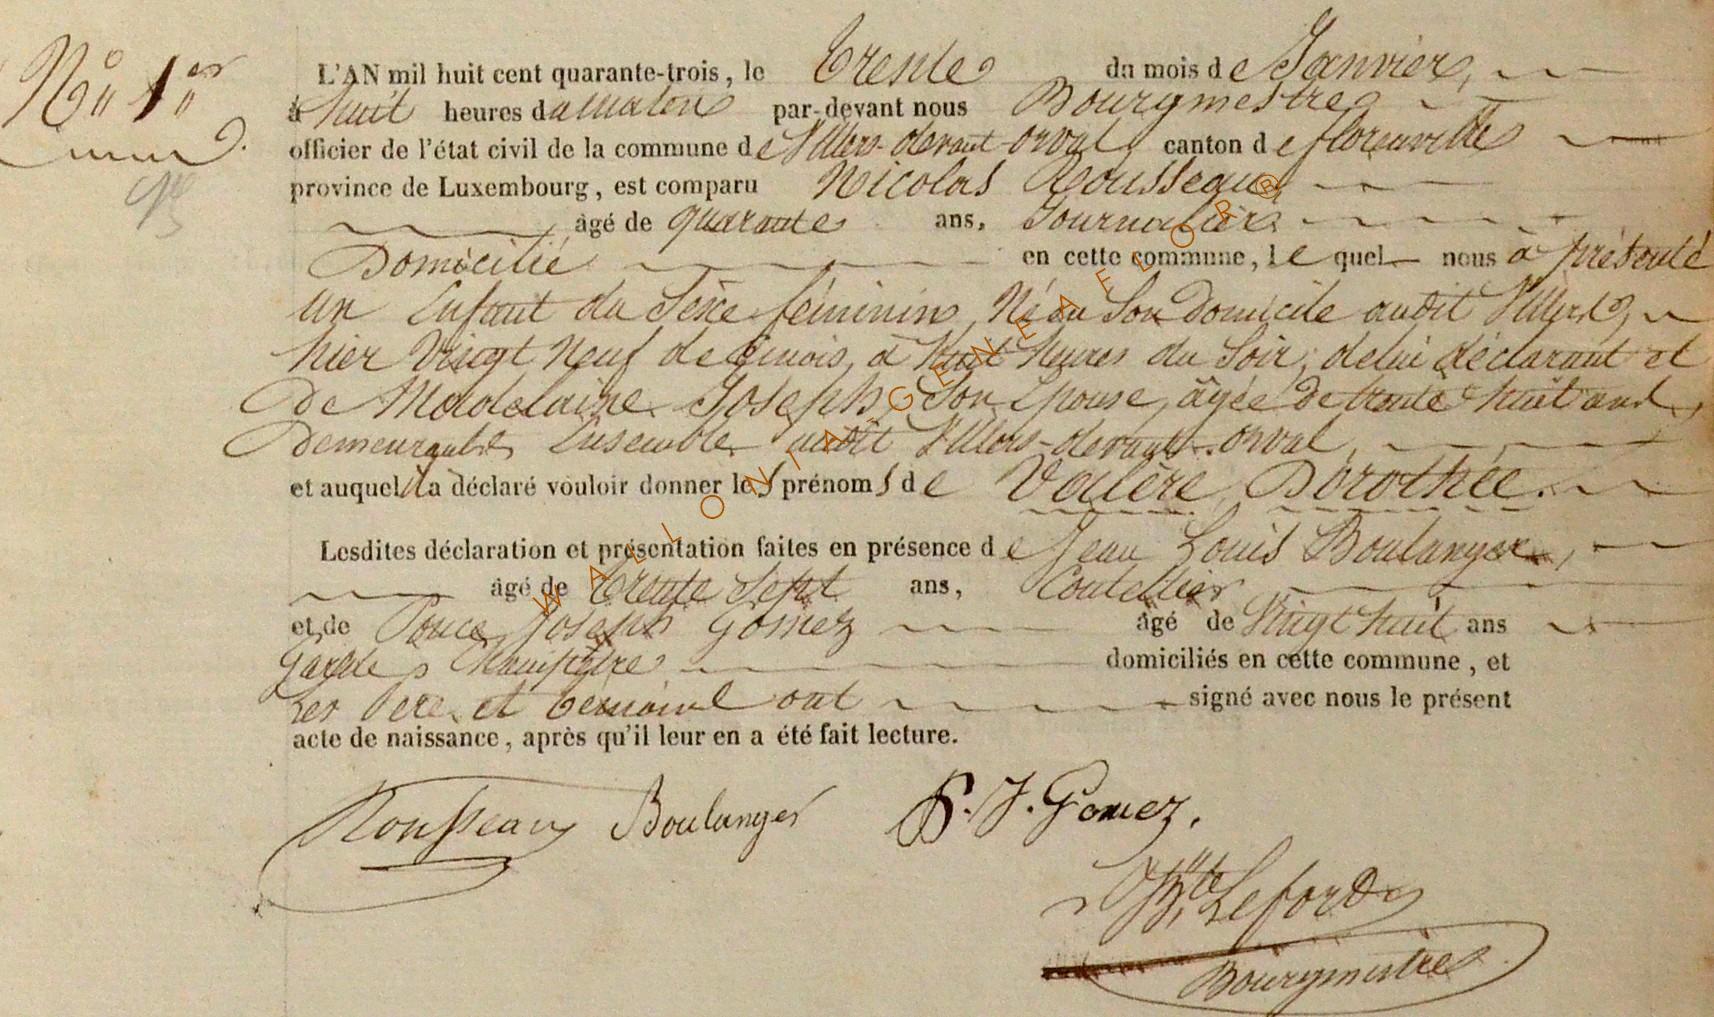 N° 1er
L'AN mil huit cent quarante-trois, le Trente du mois de Janvier,
à huit heures du matin par-devant nous Bourgmestre
officier de l'état civil de la commune de Villers-devant-orval canton de florenville
province de Luxembourg, est comparu Nicolas Rousseau,
âgé de quarante ans, Journalier
Domicilié en cette commune, le quel nous à présenté
un Enfant du Sexe féminin, Né en Son Domicile audit Villers,
hier Vingt Neuf de ce mois, à huit heures du Soir, de lui déclarant et
De Madelaine Joseph, Son Epouse, âgée de trente huit ans,
Demeurants Ensemble audit Villers-devant-orval,
et auquel il a déclaré vouloir donner les prénoms de Valère Dorothée.
Lesdites déclaration et présentation faites en présence de Jean Louis Boulanger,
âgé de Trente Sept ans, Coutellier
et de Ponce Joseph Gomez âgé de Vingt huit ans
Garde Champêtre domiciliés en cette commune, et
Les Père et témoins ont signé avec nous le présent
acte de naissance, après qu'il leur en a été fait lecture.
Rousseau Boulanger P. J. Gomez.
Leford
Bourgmestre
WALLONIA-GENEAELORB